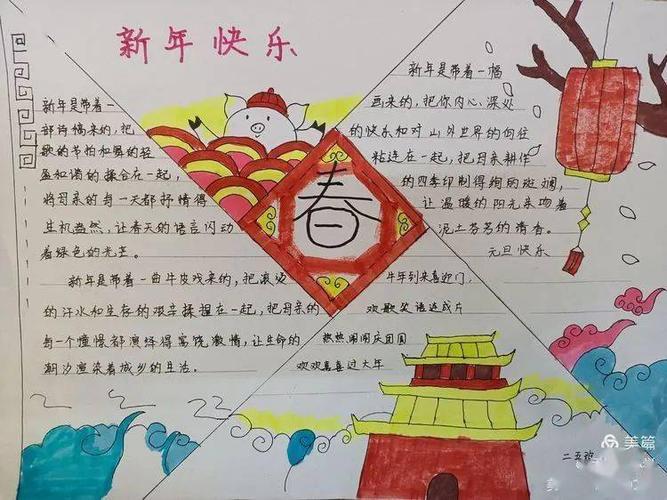 新年快乐
新年是带着一
部诗稿来的，把
歌的节拍和舞的轻
盈和谐的揉合在一起，
将母亲的每一天都抒情得
生机盎然，让春天的语言闪动
着绿色的光芒。
新年是带着一曲牛皮戏来的，把滚烫
的汗水和生存的艰辛揉捏在一起，把母亲的
每一个憧憬都演绎得富饶激情，让生命的
潮汐渲染着城乡的生活。
春
新年是带着一幅
画来的，把你内心深处
的快乐和对山外世界的向往
粘连在一起，把母亲耕作
的四季印制得绚丽斑斓，
让温暖的阳光亲吻着
泥土芬芳的清香。
元旦快乐
牛年到来喜迎门，
欢歌笑语连成片
热热闹闹庆团圆
欢欢喜喜过大年
二五欢
美篇